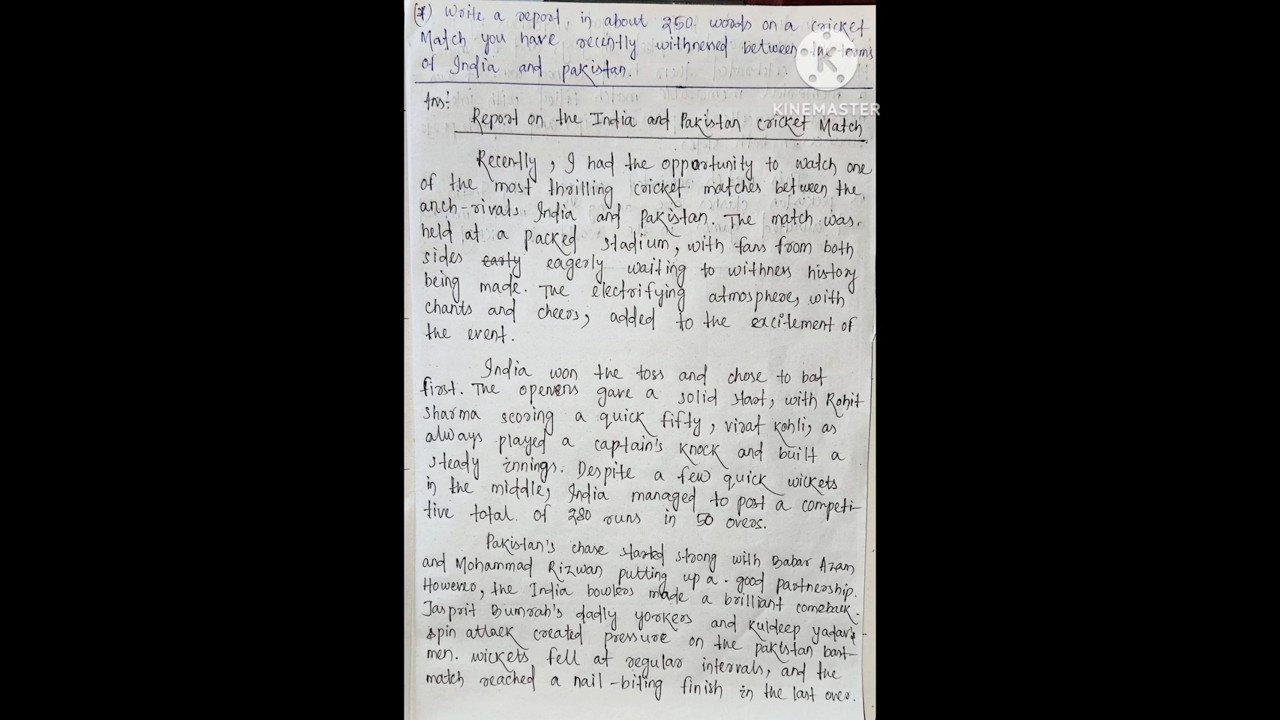 (*) Write a report in about 250 words on a cricket
Match you have recently withnened between the teams
of India and pakistan.
KINEMASTER
Ans:
Report on the India and Pakistan cricket Match
Recently, I had the opportunity to watch one
of the most thrilling cricket matches between the
arch-rivals India and Pakistan. The match was
held at a packed stadium, with fans from both
sides early eagerly waiting to withness history
being made. The electrifying atmosphere, with
chants and cheers, added to the excitement of
the event.
India won the toss and chose to bat
first. The openers gave a solid start, with Rohit
Sharma scoring a quick fifty, virat kohli, as
always played a captain's knock and built a
steady innings. Despite a few quick wickets
in the middle, India managed to post a competi-
tive total of 280 runs in 50 overs.
Pakistan's chase started strong with Babar Azam
and Mohammad Rizwan putting up a good partnership.
However, the India bowlers made a brilliant comeback.
Jasprit Bumrah's dadly yorkers and kuldeep yadav's
spin attack created pressure on the pakistan bast-
men. wickets fell at regular intervals, and the
match reached a nail-biting finish in the last over.